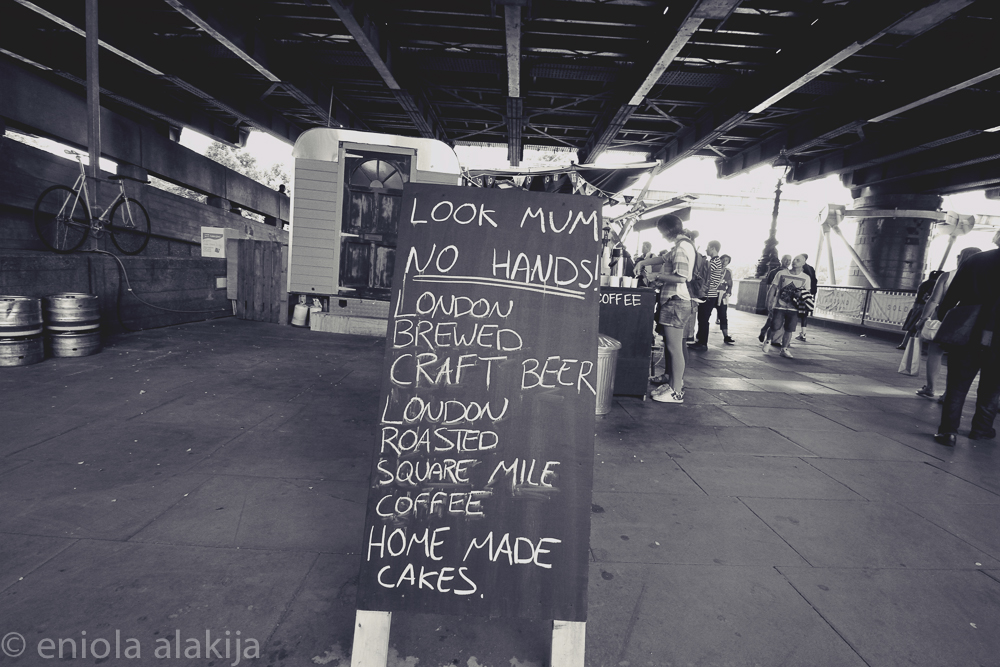 LOOK MUM
NO HANDS!
LONDON
BREWED
CRAFT BEER
LONDON
ROASTED
SQUARE MILE
COFFEE
HOME MADE
CAKES.
COFFEE
© eniola alakija